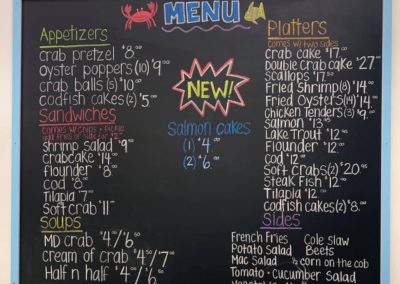 MENU
Appetizers
crab pretzel $8.00
oyster poppers (10) $9.00
crab balls (5) $10.00
codfish cakes (2) $5.00
Sandwiches
comes w/chips + pickle
shrimp salad $9.00
crabcake $14.00
flounder $8.00
cod $8.00
Tilapia $7.00
Soft crab $11.00
Soups
MD crab $4.00/$6.50
cream of crab $4.50/7.00
Half n half $4.00/$6.50
NEW!
Salmon cakes
(1) $4.00
(2) $6.00
Platters
comes w/two sides
crab cake $17.00
Double crab cake $27.00
Scallops $17.50
Fried Shrimp (8) $14.00
Fried Oysters (5) $14.00
Chicken Tenders (3) $9.00
Salmon $13.50
Lake Trout $12.00
Flounder $12.00
cod $12.00
Soft Crabs (2) $20.95
Steak Fish $12.00
Tilapia $12.00
Codfish cakes (2) $8.00
Sides
French Fries Cole slaw
Potato Salad Beets
Mac Salad ½ corn on the cob
Tomato + Cucumber Salad